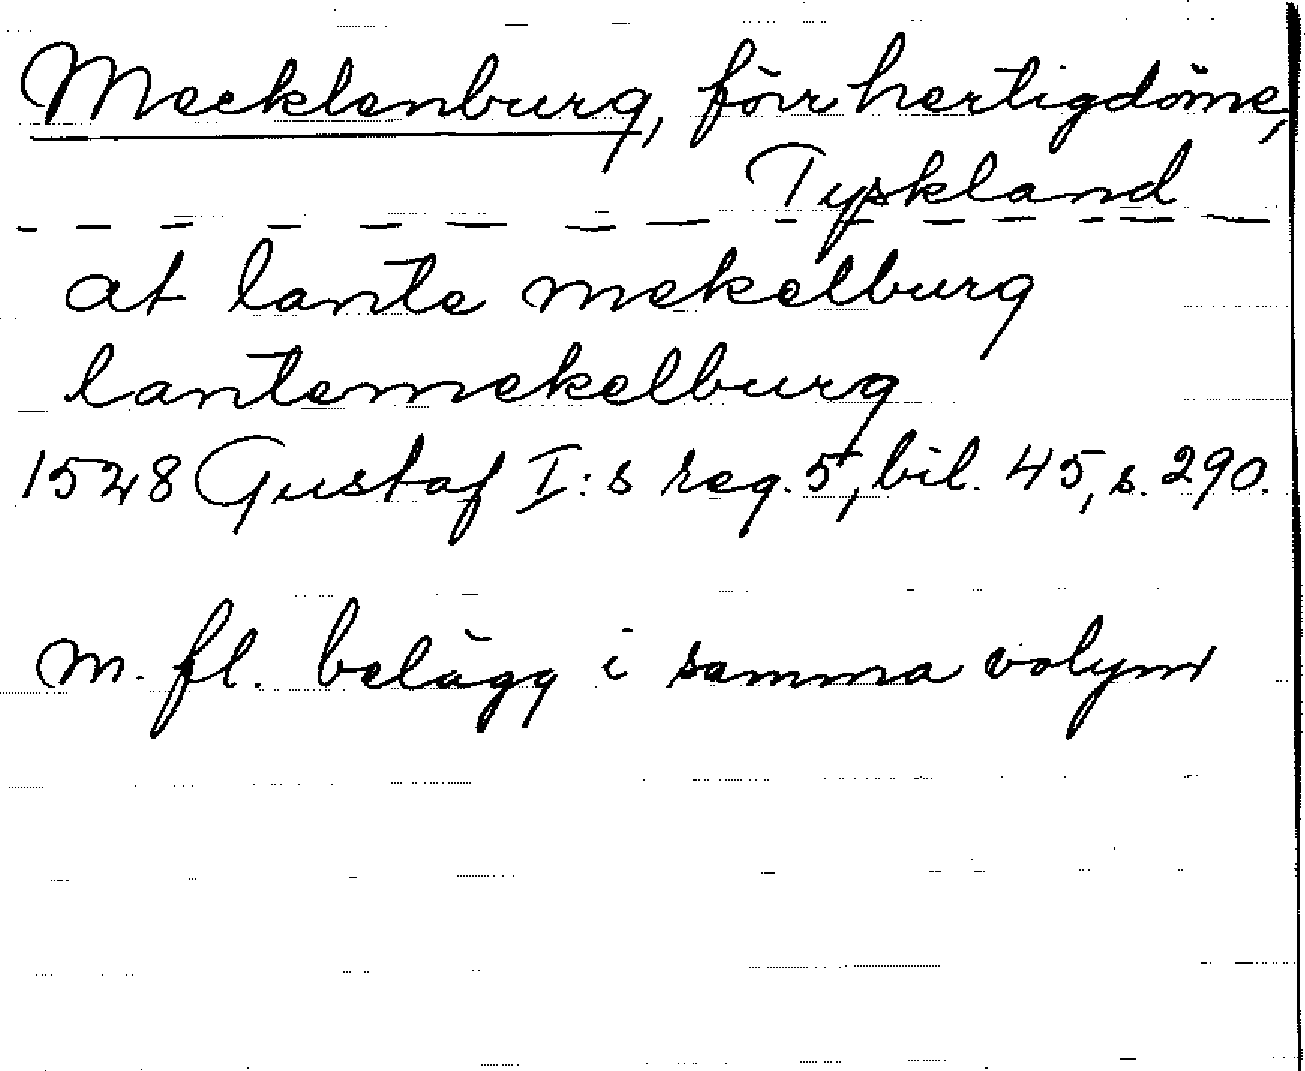 Mecklenburg, förr hertigdöme,
Tyskland
at lante mekelburg
lantemekelburg
1528 Gustaf I:s reg. 5, bil. 45, s. 290.
m. fl. belägg i samma volym